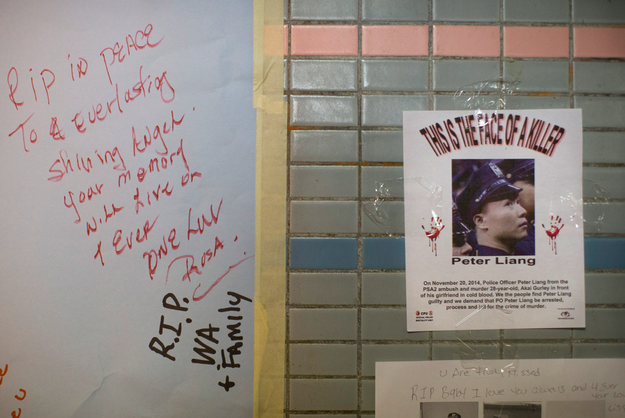 Rip in peace
To A Everlasting
shining Angel.
your memory
will Live on
4 Ever
ONE LUV
Rosa.
R.I.P.
WA
+ Family
THIS IS THE FACE OF A KILLER
Peter Liang
On November 20, 2014, Police Officer Peter Liang from the
PSA2 ambush and murder 28-year-old, Akai Gurley in front
of his girlfriend in cold blood. We the people find Peter Liang
guilty and we demand that PO Peter Liang be arrested,
process and for the crime of murder.
U Are missed
RIP Baby I love you always and 4 Ever